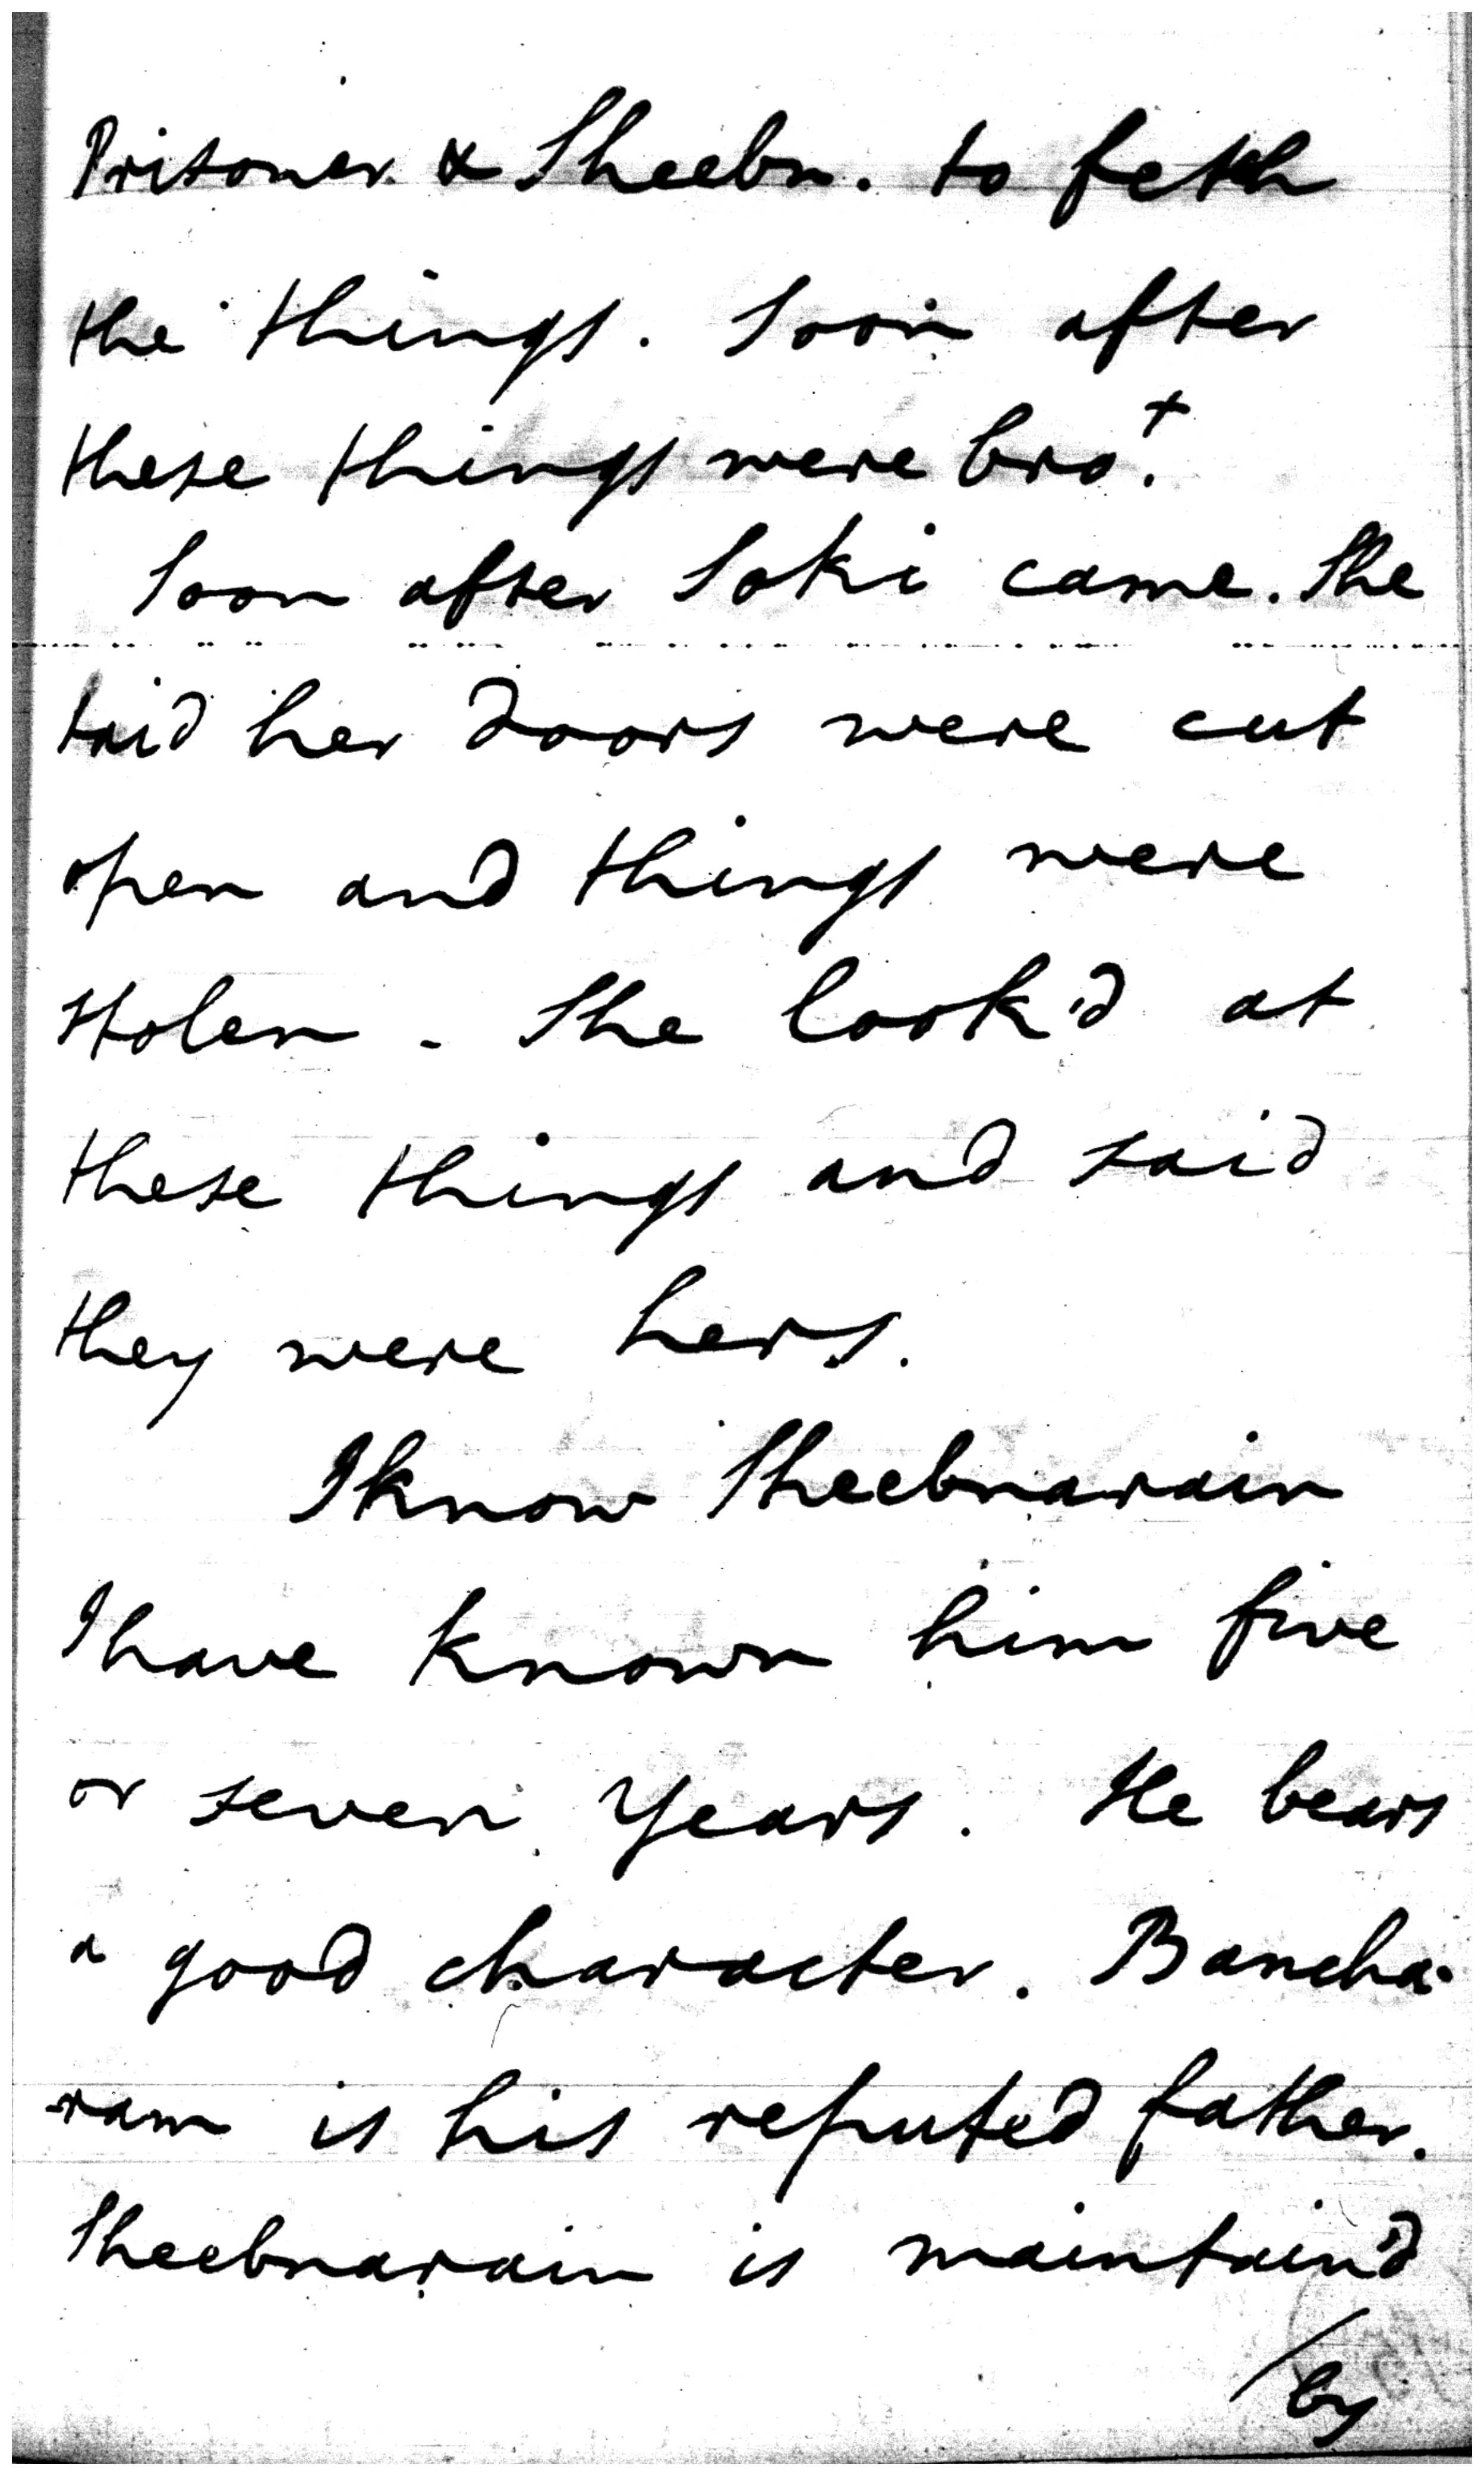 Prisoner & Sheebn. to feth
the things. Soon after
these things were bro.t
Soon after Soki came. She
said her doors were cut
open and things were
stolen - She look'd at
these things and said
they were hers.
I know Sheebnarain
I have known him five
or seven years. He bears
a good character. Bancha-
-ram is his reputed father.
Sheebnarain is maintain'd
/by